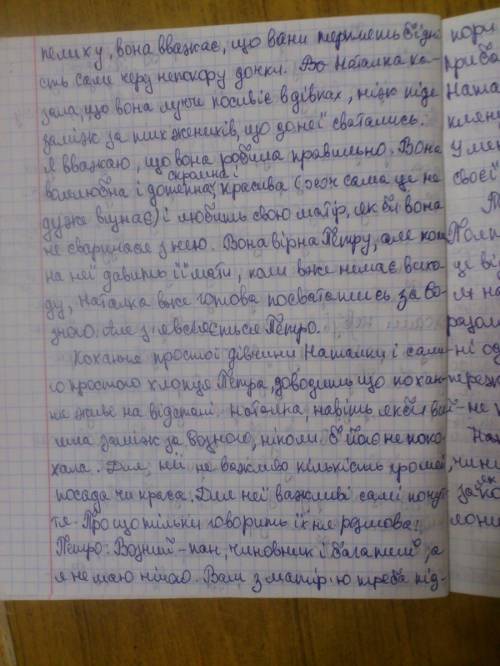 пелиху, вона вважає, що вони терплять бідні-
сть саме через непокору дочки. Бо Наталка ка-
зала, що вона лучче посивіє в дівках, ніж піде
заміж за тих жеників, що до неї сватались.
Я вважаю, що вона робила правильно. Вона
скромна і
волелюбна і дотепна, красива (хоч сама це не
дуже визнає) і любить свою матір, як би вона
не сварилася з нею. Вона вірна Петру, але коли
на неї давить її мати, коли вже немає вихо-
ду, Наталка вже готова посвататись за Во-
зного. Але з'являється Петро.
Кохання простої дівчини Наталки і само-
го простого хлопця Петра, доводить що кохан-
ня живе на відстані. Наталка, навіть якби вий-
шла заміж за Возного, ніколи б його не поко-
хала. Для неї не важливо кількість грошей
посада чи краса. Для неї важливі самі почут-
тя. Про що тільки говорить їхня розмова:
Петро: Возний - пан, чиновник і багатий, а
я не маю нічого. Вам з матір'ю треба під-